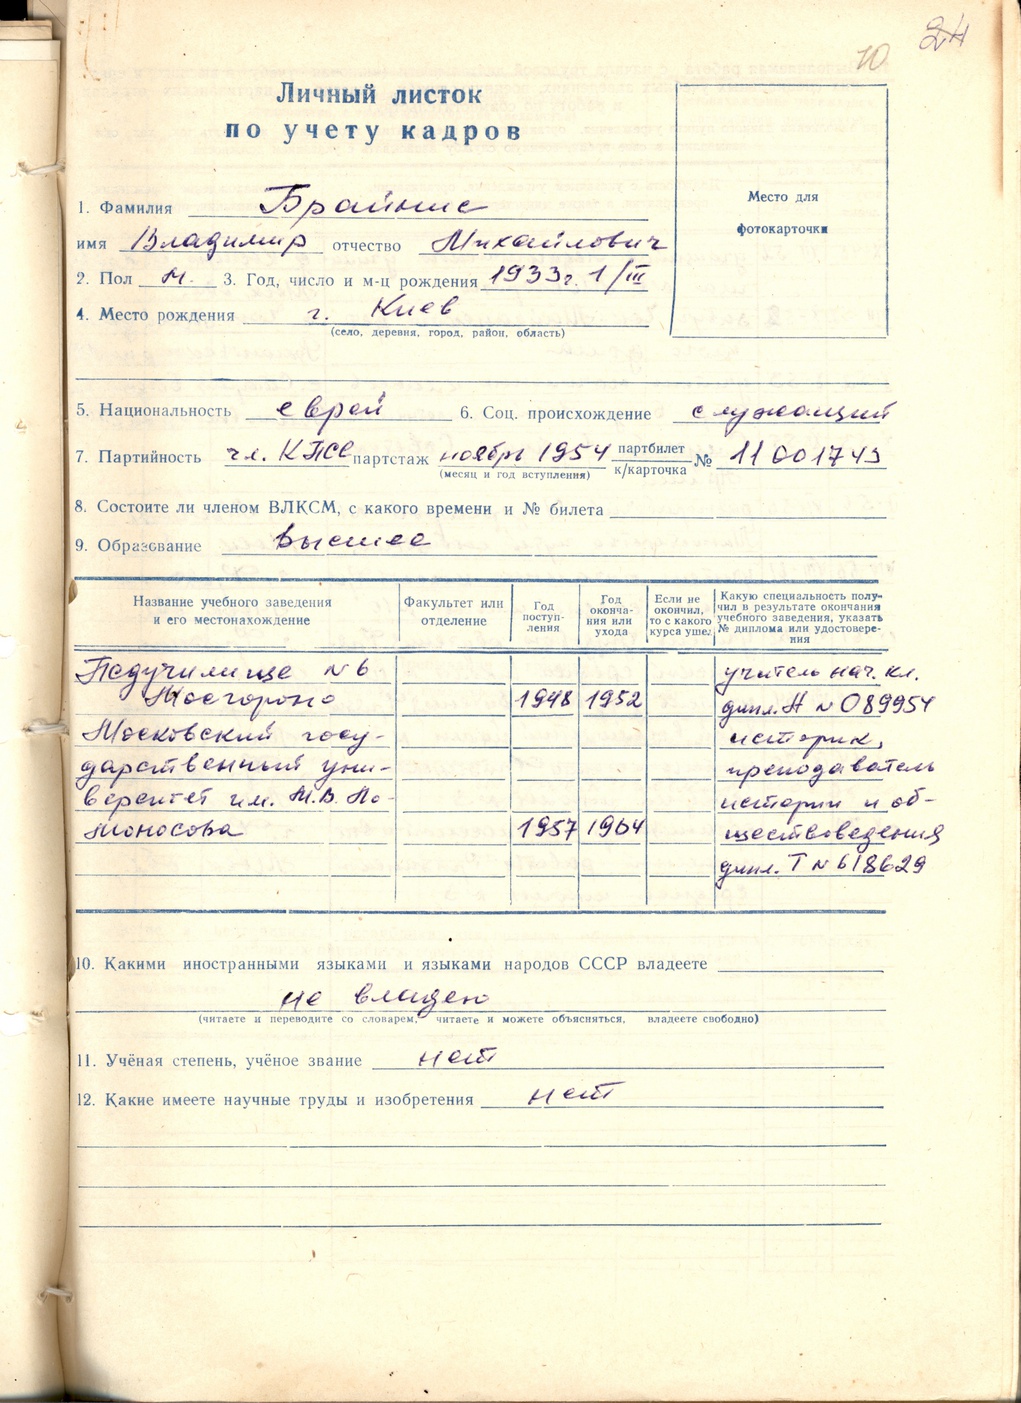 24
10
Личный листок
по учету кадров
Место для
фотокарточки
1. Фамилия Брайнис
имя Владимир отчество Михайлович
2. Пол М. 3. Год, число и м-ц рождения 1933г. 1/III
4. Место рождения г. Киев
(село, деревня, город, район, область)
5. Национальность еврей 6. Соц. происхождение служащий
7. Партийность чл. КПСС партстаж ноябрь 1954 партбилет к/карточка № 11001743
(месяц и год вступления)
8. Состоите ли членом ВЛКСМ, с какого времени и № билета
9. Образование высшее
Название учебного заведения и его местонахождение
Факультет или отделение
Год поступ-ления
Год оконча-ния или ухода
Если не окончил, то с какого курса ушел
Какую специальность полу-чил в результате окончания учебного заведения, указать № диплома или удостовере-ния
Педучилище N 6 учитель нач. кл.
Мосгороно 1948 1952 дипл. А N 089954
Московский госу- историк,
дарственный уни- преподаватель
верситет им. М.В. Ло- истории и об-
моносова 1957 1964 ществоведения
дипл. Т N 618629
10. Какими иностранными языками и языками народов СССР владеете
не владею
(читаете и переводите со словарем, читаете и можете объясняться, владеете свободно)
11. Учёная степень, учёное звание нет
12. Какие имеете научные труды и изобретения нет